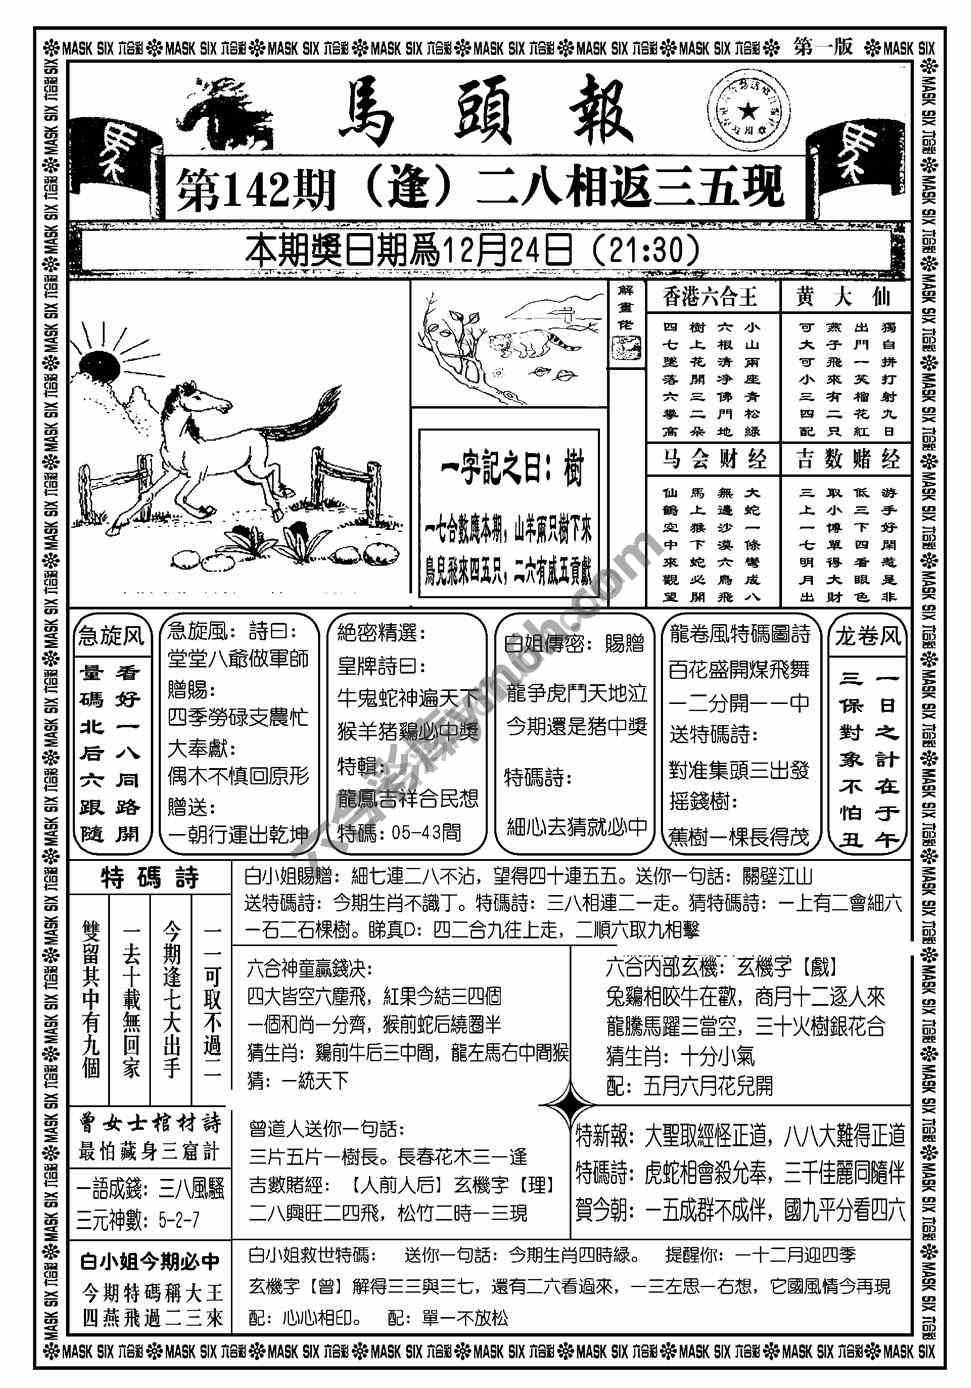 MASK SIX 六合彩 MASK SIX 六合彩 MASK SIX 六合彩 MASK SIX 六合彩 MASK SIX 六合彩 MASK SIX 六合彩 MASK SIX 六合彩 第一版 MASK SIX
馬頭報
第142期（逢）二八相返三五现
本期獎日期爲12月24日（21:30）
解畫佬
一字記之曰：樹
一七合數應本期，山羊兩只樹下來
鳥兒飛來四五只，二六有感五貢獻
香港六合王
小山兩座青松綠
六根清净佛門地
樹上花開三二朵
四七墜落六攀高
黄大仙
獨自拼打射九日
出門一笑榴花紅
燕子飛來有二只
可大可小三四配
马会财经
大蛇一條彎成八
無邊沙漠六鳥飛
馬上猴下蛇必開
仙鶴空中來觀望
吉数赌经
游手好閑惹是非
低三下四看眼色
取小博單得大財
三上一七明月出
急旋风
看好一八同路開
量碼北后六跟隨
急旋風：詩曰：
堂堂八爺做軍師
贈賜：
四季勞碌支農忙
大奉獻：
偶木不慎回原形
贈送：
一朝行運出乾坤
絶密精選：
皇牌詩曰：
牛鬼蛇神遍天下
猴羊猪鷄必中獎
特輯：
龍鳳吉祥合民想
特碼：05-43間
白姐傳密：賜贈
龍争虎鬥天地泣
今期還是猪中獎
特碼詩：
細心去猜就必中
龍卷風特碼圖詩
百花盛開煤飛舞
一二分開一一中
送特碼詩：
對准集頭三出發
摇錢樹：
蕉樹一棵長得茂
龙卷风
一日之計在于午
三保對象不怕丑
特碼詩
一一可取不過二
今期逢七大出手
一去十載無回家
雙留其中有九個
白小姐賜贈：細七連二八不沾，望得四十連五五。送你一句話：關壁江山
送特碼詩：今期生肖不識丁。特碼詩：三八相連二一走。猜特碼詩：一上有二會細六
一石二石棵樹。睇真D：四二合九往上走，二順六取九相擊
六合神童贏錢决：
四大皆空六塵飛，紅果今結三四個
一個和尚一分齊，猴前蛇后繞圈半
猜生肖：鷄前牛后三中間，龍左馬右中間猴
猜：一統天下
六合内部玄機：玄機字【戲】
兔鷄相咬牛在歡，商月十二逐人來
龍騰馬躍三當空，三十火樹銀花合
猜生肖：十分小氣
配：五月六月花兒開
曾女士棺材詩
最怕藏身三窟計
一語成錢：三八風騷
三元神數：5-2-7
曾道人送你一句話：
三片五片一樹長。長春花木三一逢
吉數賭經：【人前人后】玄機字【理】
二八興旺二四飛，松竹二時一三現
特新報：大聖取經怪正道，八八大難得正道
特碼詩：虎蛇相會殺允奉，三千佳麗同隨伴
賀今朝：一五成群不成伴，國九平分看四六
白小姐今期必中
今期特碼稱大王
四燕飛過二三來
白小姐救世特碼： 送你一句話：今期生肖四時緑。 提醒你：一十二月迎四季
玄機字【曾】解得三三與三七，還有二六看過來，一三左思一右想，它國風情今再現
配：心心相印。 配：單一不放松
MASK SIX 六合彩 MASK SIX 六合彩 MASK SIX 六合彩 MASK SIX 六合彩 MASK SIX 六合彩 MASK SIX 六合彩 MASK SIX 六合彩 MASK SIX 六合彩 MASK SIX